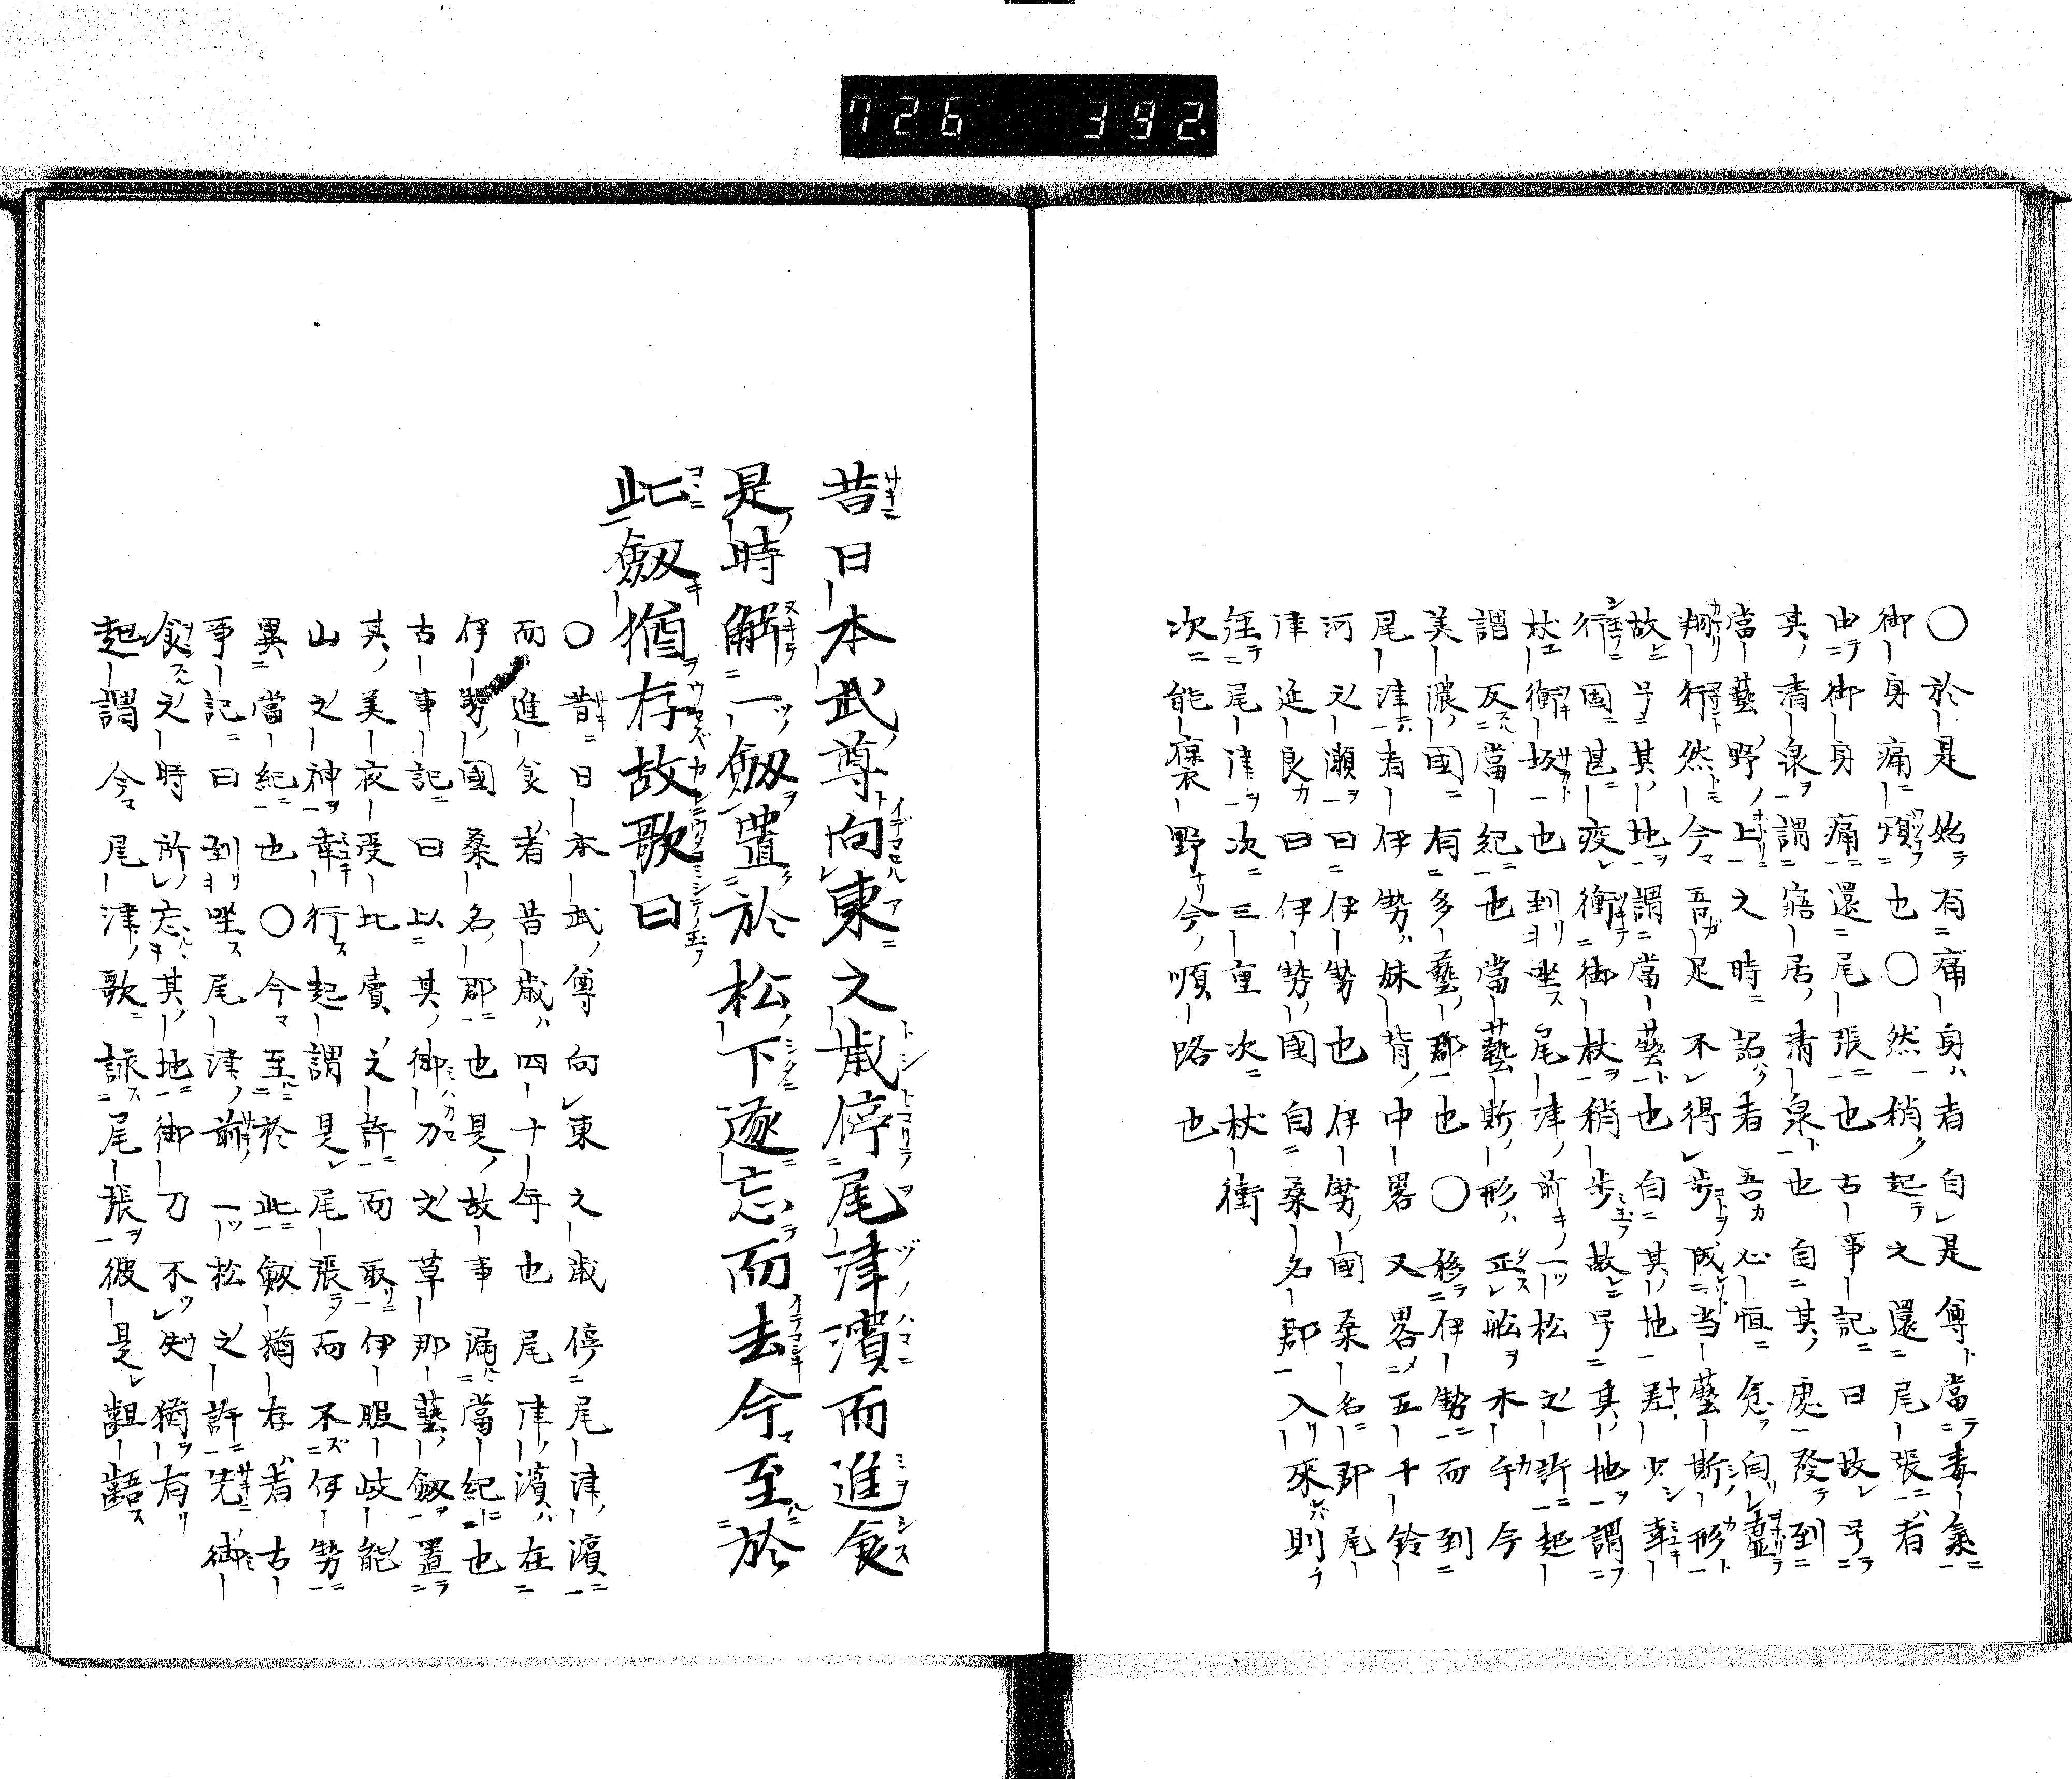 726 392.
〇於是始有痛身者自是尊當毒氣
御身痛煩也〇然稍起之還尾張者
由御身痛還尾張也古事記曰故号
其清泉謂寤居清泉也自其處發到
當藝野上之時詔者吾心恒念自虚
翔行然今吾足不得歩成当藝斯形
故号其地謂當藝也自其地差少幸
行国甚疲衝御杖稍歩故号其地謂
杖衝坂也到坐尾津前一松之許起
謂反當紀也當藝斯形正舩木手今
美濃國有多藝郡也〇移伊勢而到
尾津者伊勢妹背中畧又畧五十鈴
河之瀬曰伊勢也伊勢國桑名郡尾
津延良曰伊勢國自桑名郡入來則
経尾津次三重次杖衝
次能褒野今順路也
昔日本武尊向東之歳停尾津濱而進食
是時解一劔置於松下遂忘而去今至於
此劔猶存故歌曰
〇昔日本武尊向東之歳停尾津濱
而進食者昔歳四十年也尾津濱在
伊勢國桑名郡也是故事漏當紀也
古事記曰以其御刀之草那藝劔置
其美夜受比賣之許而取伊服岐能
山之神幸行起謂是尾張而不伊勢
異當紀也〇今至於此劔猶存者古
事記曰到坐尾津前一松之許先御
食之時所忘其地御刀不失猶有
起謂今尾津歌詠尾張彼是齟齬